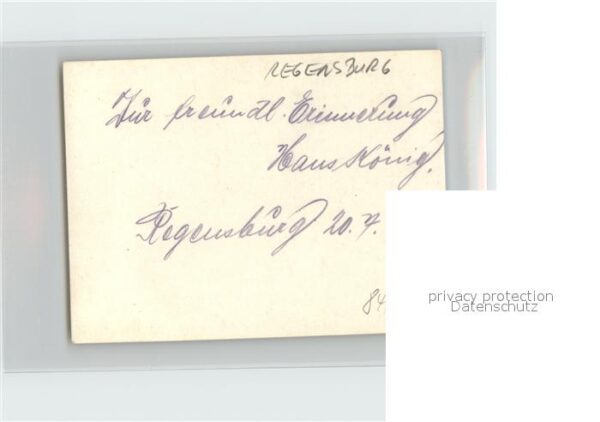 REGENSBURG
Zur freundl. Erinnerung
Hans König.
Regensburg 20.4.
84
privacy protection
Datenschutz